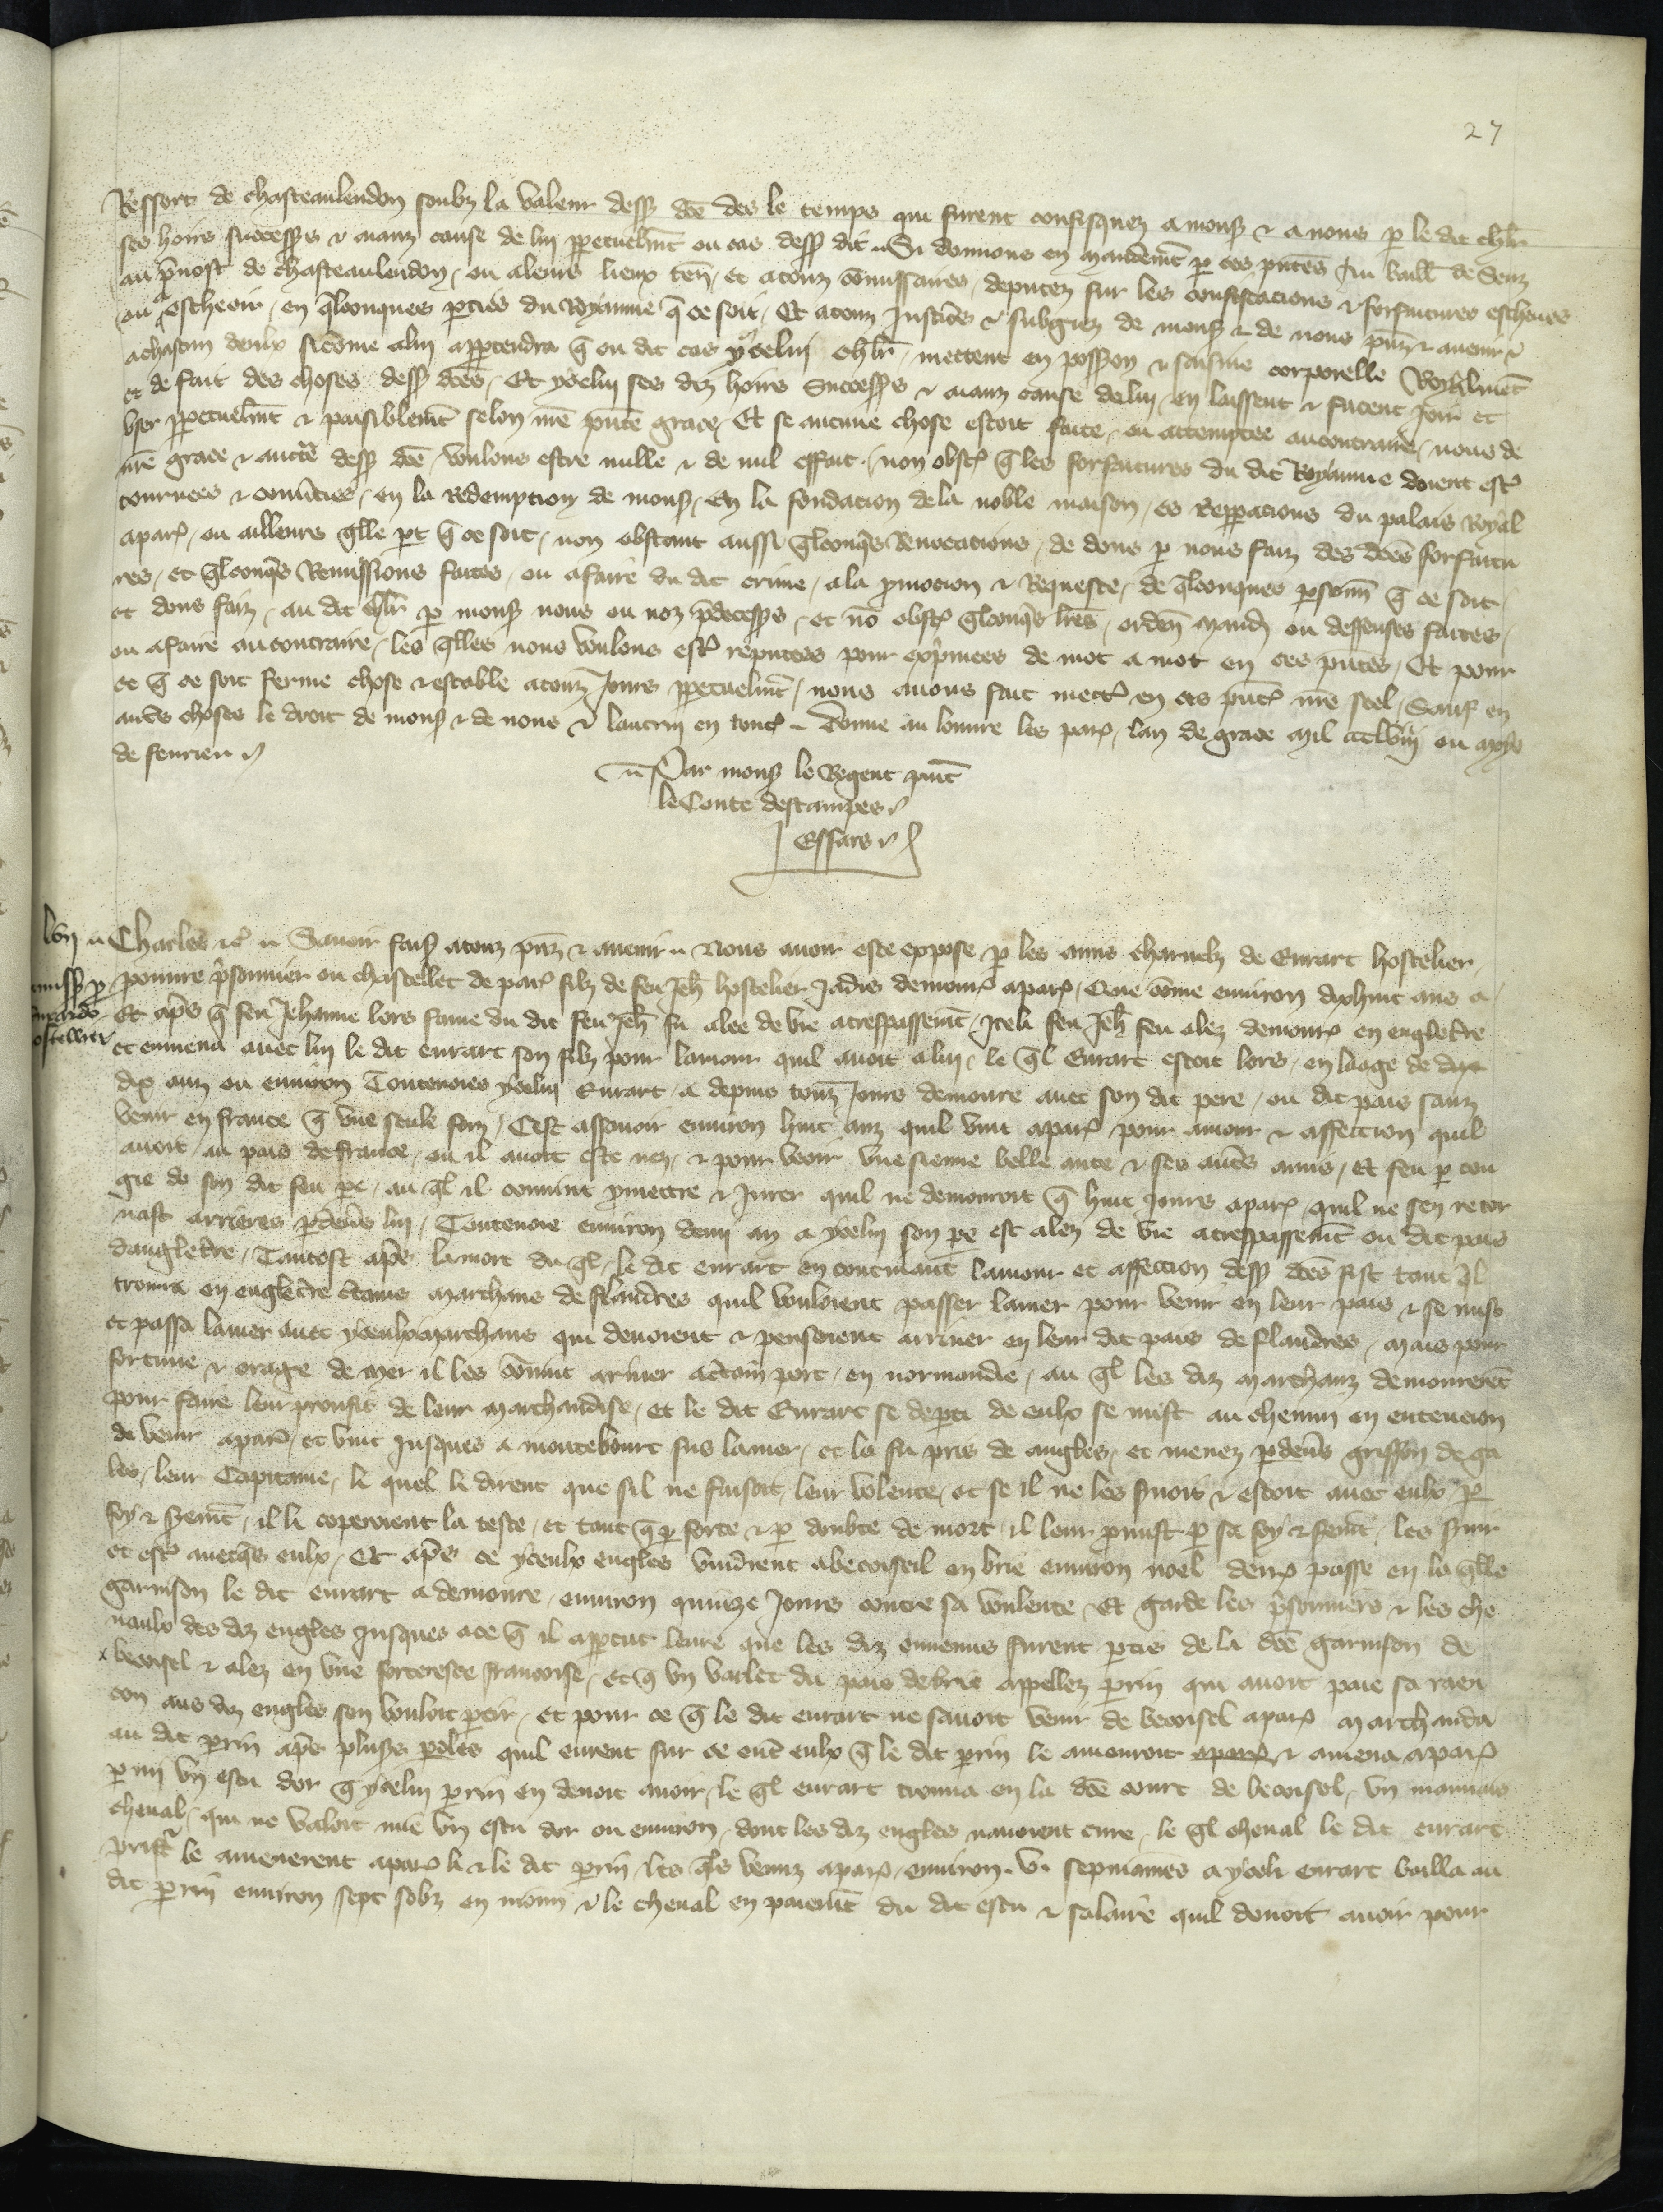 27
Ressort de chasteaulandon soubz la valeur dess dce des le temps qui furent confisquez a mons et a nous p le dit chlr
ses hoirs successrs et aianz cause de lui ppetuelmt ou cas dess dit Si donnons en mandemt p ces pntes Au baill de Senz
au pvost de chasteaulandon, ou a leurs lieux ten, et a touz comissaires, deputez sur les confiscacions et forfaitures escheues
ou escheoir, en qlconques pties du Royaume q ce soit, Et a touz Justices et subgiez de mons et de nous pnz et avenir
a chascun deulx sicome a lui apptendra q ou dit cas ycelui chlr, mettent en possion et saisine corporelle Royalment
et de fait des choses dess dces, Et ycelui ses diz hoirs Successrs et aianz cause de lui, en laissent et facent Joir et
user ppetuelmt et paisiblemt selon nre pnte grace, Et se aucune chose estoit faite, ou attemptee au contraire, nous de
nre grace et auctte dess dce voulons estre nulle et de nul effait, non obst q les forfaitures du dit Royaume doient estre
tournees et convties, en la Redempcion de mons, En la fondacion de la noble maison, es Reppacions du palais Royal
a par, ou ailleurs qlle pt q ce soit, non obstant aussi qlconqs Revocations, de dons p nous faiz des dces forfaitu
res, et qlconqs Remissions faites, ou a faire du dit crime, a la pmocion et Requeste, de qlconques psonn q ce soit,
et dons faiz, au dit chlr p mons nous ou noz pdecessrs, et no obst qlconqs lres, orden mand ou deffenses faites,
ou a faire au contraire, les qlles nous voulons est reputees pour expmees de mot a mot en ces pntes, Et pour
ce q ce soit ferme chose et estable a touz Jours ppetuelmt, nous avons fait mett en ces pnt nre seel, Sauf en
autres choses le droit de mons et de nous et lautrui en tout Donne au louvre les par, lan de grace mil ccclviij ou moys
de fevrier
Par mons le Regent pnt
le Conte destampes
Essars
lvij Charles etc Savoir faiss a touz pnz et avenir Nous avoir este expose p les amis charnelz de Evrart hostelier,
povre psonnier ou chastellet de par filz de feu Jeh hostelier Jadis demour a par, Que come environ dixhuit ans a
Et aps q feu Jehanne lors fame du dit feu Jeh fu alee de vie a trespassemt, Iceli feu Jeh feu alez demour en engletre
et enmena avec lui le dit evrart son filz pour lamour quil avoit a lui, le ql Evrart estoit lors, en laage de
dix anz ou environ Toutevoies ycelui Evrart a depuis touz Jours demoure avec son dit pere, ou dit pais sanz
venir en france q une seule foiz, Cest assavoir environ huit anz quil vint a par pour amour et affeccion quil
avoit au pais de france, ou il avoit este nez, et pour veoir une sienne belle ante et ses autres amis, Et feu p con
gie de son dit feu pe, au ql il convint pmettre et Jurer quil ne demourroit q huit Jours a par, quil ne sen retor
nast arrieres pdevs lui, Toutevoie environ demi an a ycelui son pe est alez de vie a trespassemt ou dit pais
dangletre, Tantost aps la mort du ql, le dit evrart en continuant lamour et affeccion dess dces fist tant ql
trouva en engletre ctains marchans de flandres quil vouloient passer la mer pour venir en leur pais et se mist
et passa la mer avec yceulx marchans qui devoient et pensoient arriver en leur dit pais de flandres, mais pour
fortune et orage de mer il les convint ariver a ctain port, en normandie, au ql les diz marchanz demourerent
pour faire leur proufit de leur marchandise, et le dit Evrart se depti de eulx se mist au chemin en entencion
de venir a par, et vint jusques a montebourt sus la mer, et la fu pris de angles, et menez pdevs griffon de ga
les, leur Capitaine, le quel li dirent que sil ne faisoit, leur volente, et se il ne les suoit et estoit avec eulx p
foy et sremt, il li coperoient la teste, et tant q p force et p doubte de mort, il leur pmist p sa foy et sremt, les suir
et est avecqs eulx, Et aps ce yceulx engles vindrent a becoiseil en brie environ noel derr passe en la qlle
garnison le dit evrart a demoure, environ quinze Jours contre sa voulente, Et garde les psonniers et les che
vaulx des diz engles Jusques a ce q il appcut leure que les diz ennemis furent ptis de la dce garnison de
becoisel et alez en une forteresce francoise, et q un varlet du pais de brie appellez perrin qui avoit paie sa raen
con aus diz engles sen vouloit ptir, et pour ce q le dit evrart ne savoit venir de becoisel a par marchanda
au dit perrin aps plusrs poles quil eurent sur ce ent eulx q le dit perrin le amenroit et amena a par
p mi un escu dor q ycelui perrin en devoit avoir, le ql evrart trouva en la dce court de becoisel, un mauvais
cheval, qui ne valoit mie un escu dor ou environ, dont les diz engles navoient cure, le ql cheval le dit evrart
prist le amenerent a par li et le dit perrin, les qls venuz a par, environ v sepmaines a yceli evrart bailla au
dit perrin environ sept solz en monn et le cheval en paiemt du dit escu et salaire quil devoit avoir pour